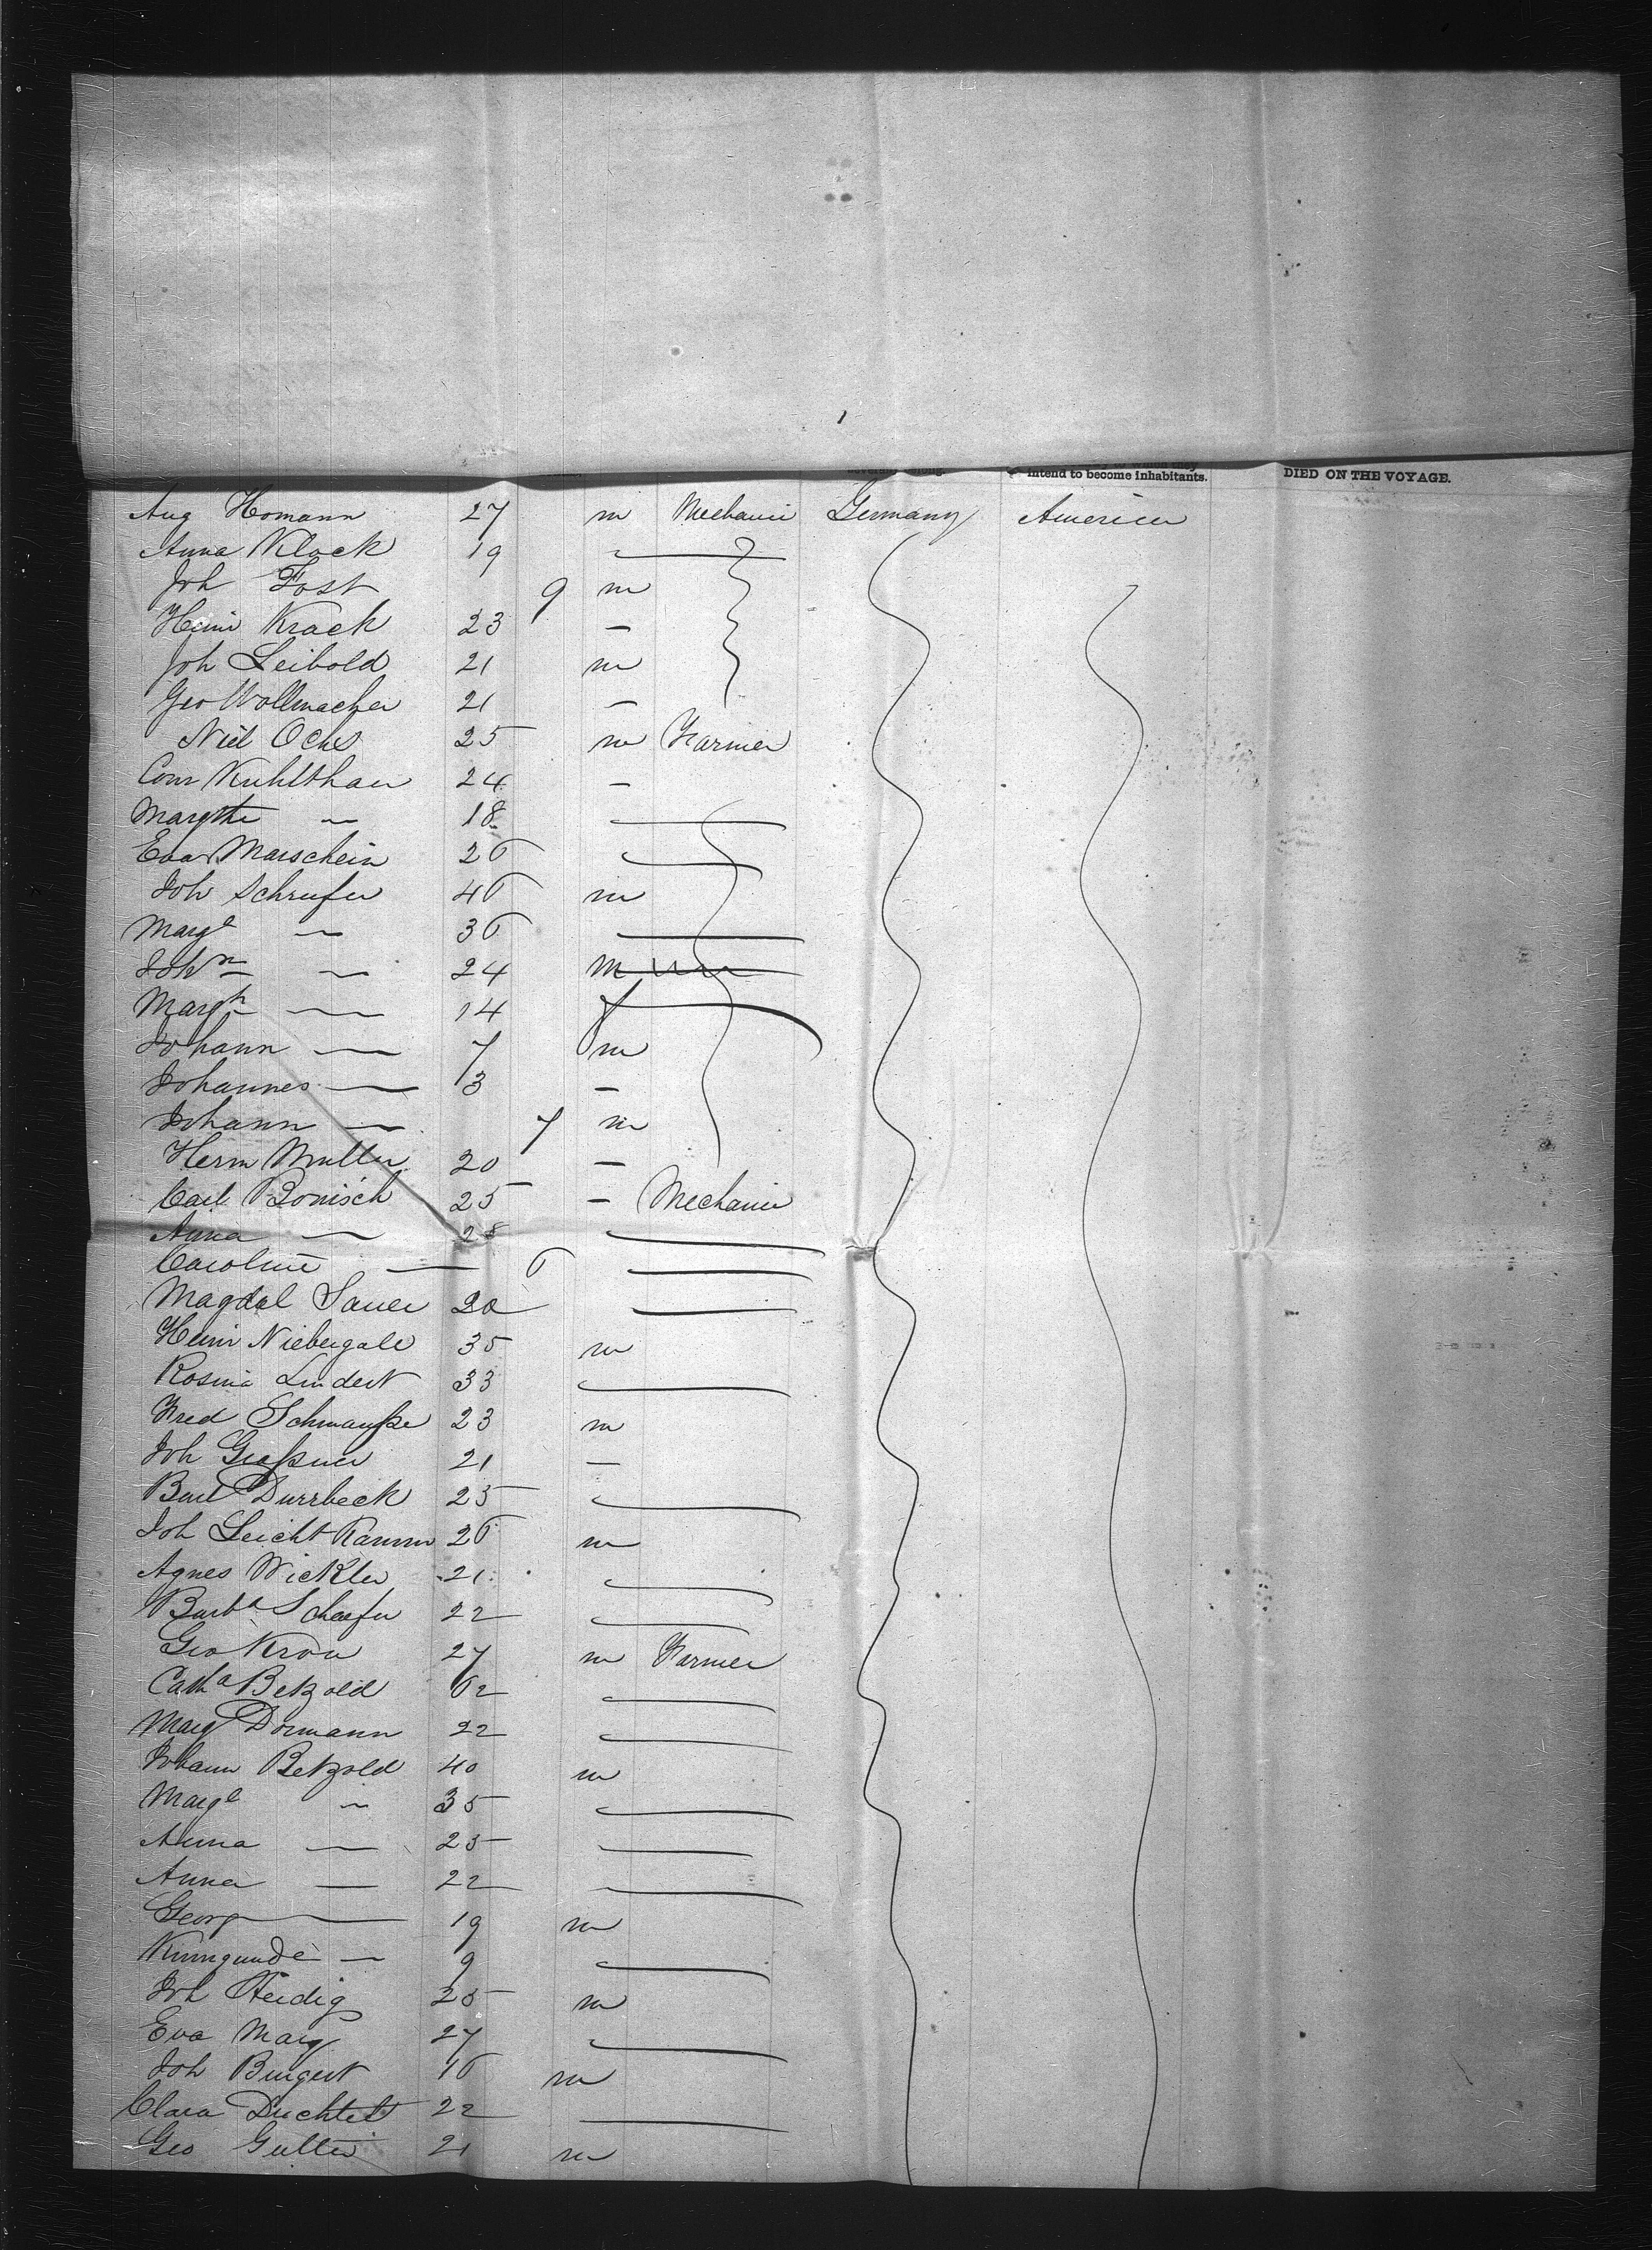 intend to become inhabitants. DIED ON THE VOYAGE.
Aug Homann 27 m Mechanic Germany America
Anna Klock 19
Joh Fost 9 m
Heinr Krack 23 —
Joh Leibold 21 m
Geo Wollmacher 21 —
Ochs 25 m Farmer
Conr Kuhlthau 24 —
Margthe — 18
Eva Marschein 26
Joh Schrufer 46 m
Marg — 36
John — 24 m
Margh — 14 f
Johann — 7 m
Johannes — 3 —
Johann — 7 m
Herm Muller 20 —
Carl Bonisch 25 — Mechanic
Anna — 28
Caroline — 6
Magdal Sauer 20
Heinr Niebergall 35 m
Rosina Lindert 33
Fred Schmauße 23 m
Joh Graßner 21 —
Durrbeck 25
Joh Leicht Kamm 26 m
Agnes Wickler 21
Barba Schaefer 22
Geo Kron 27 m Farmer
Catha Betzold 62
Marg Dormann 22
Johann Betzold 40 m
Marg — 35
Anna — 25
Anna — 22
Georg — 19 m
Kunngunde — 9
Joh Heidig 25 m
Eva Marg 27
Joh Bingert 16 m
Clara 22
Geo 21 m